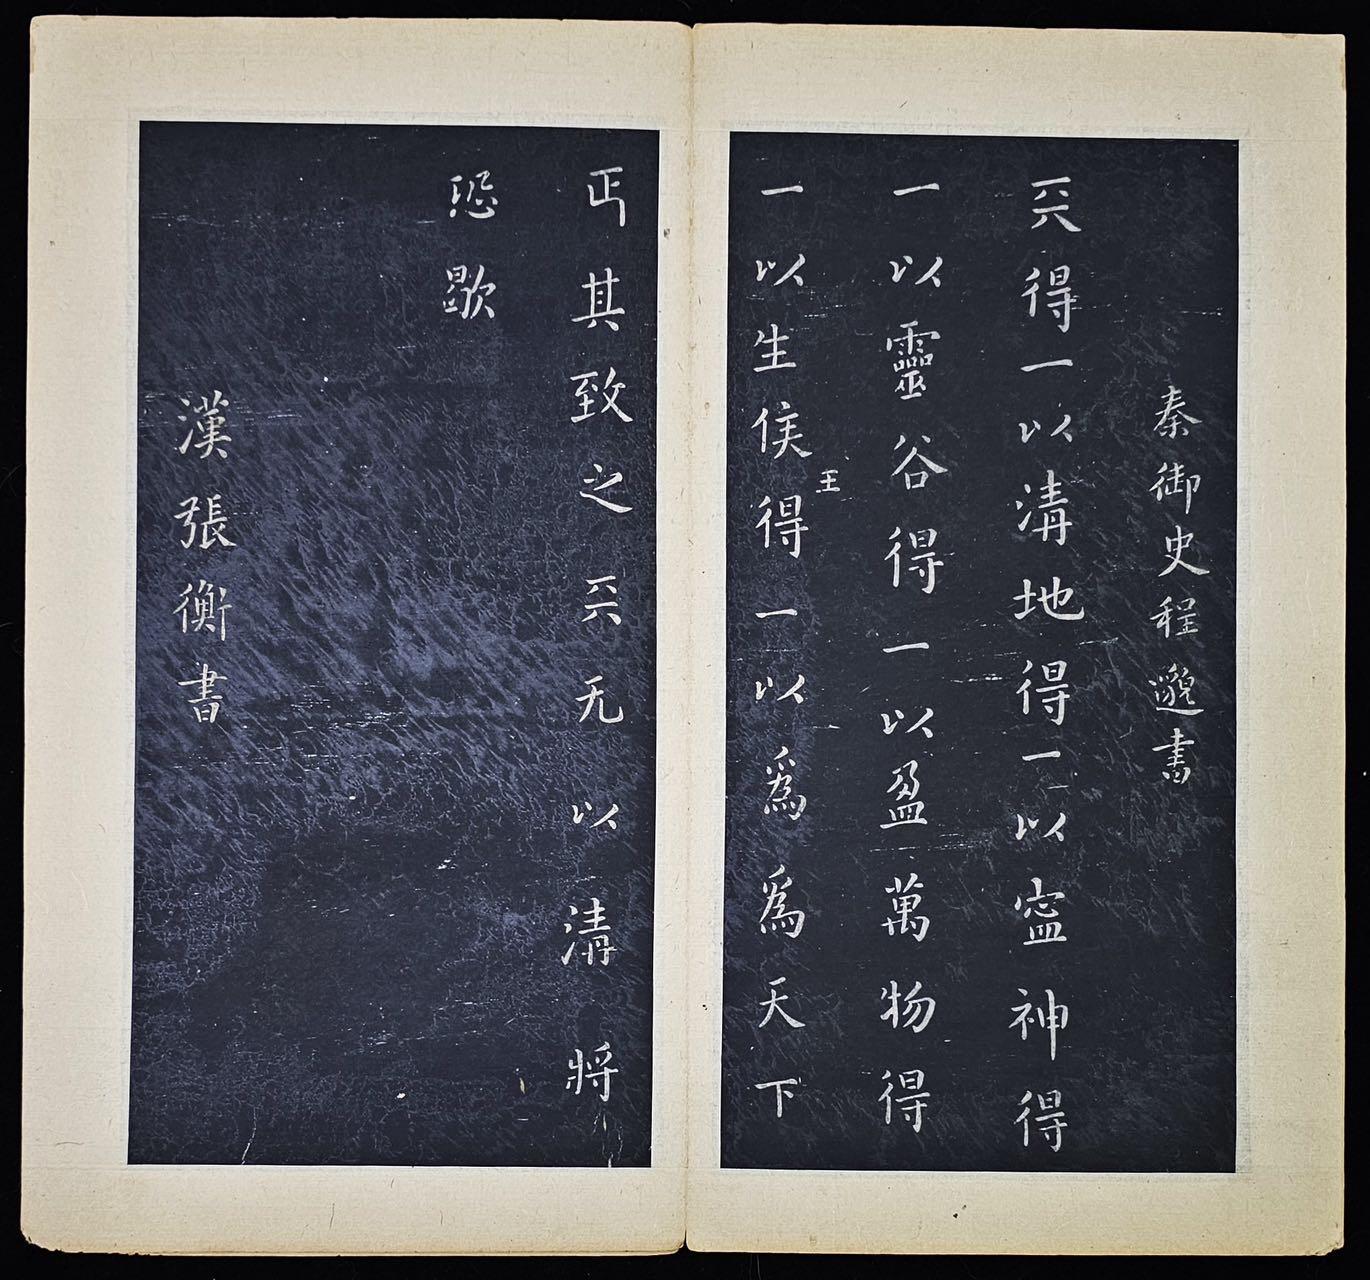 秦御史程邈書
天得一以清地得一以寍神得
一以靈谷得一以盈萬物得
一以生侯王得一以爲爲天下
正其致之天无以清將
恐歇
漢張衡書